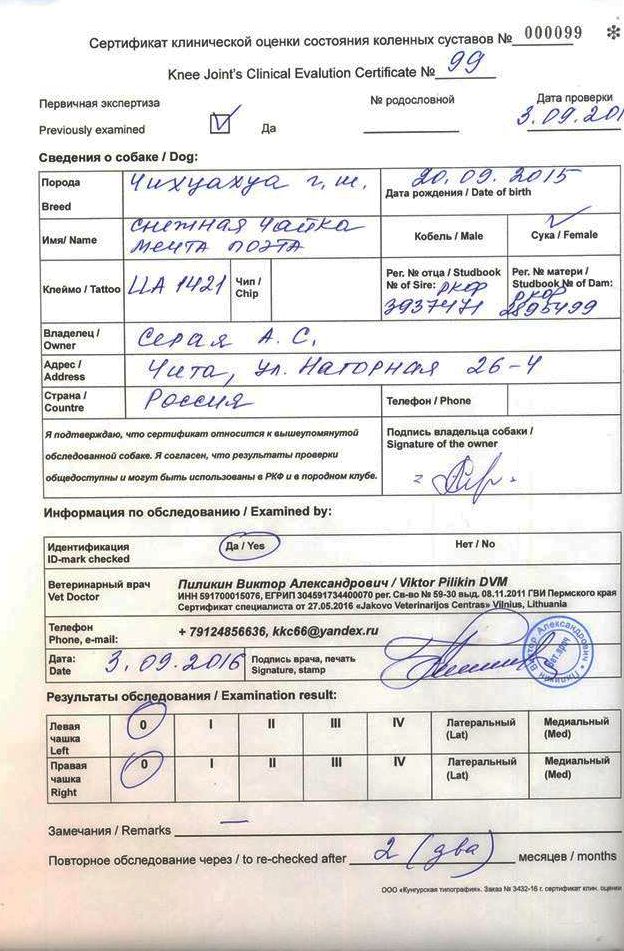 Сертификат клинической оценки состояния коленных суставов № 000099 *
Knee Joint's Clinical Evalution Certificate № 99
Первичная экспертиза № родословной Дата проверки
Previously examined Да 3.09.201
Сведения о собаке / Dog:
Порода Чихуахуа г.ш. 20.09.2015
Breed Дата рождения / Date of birth
Имя/ Name Снежная Чайка Кобель / Male Сука / Female
Мечта Поэта
Клеймо / Tattoo ЦА 1421 Чип / Chip Рег. № отца / Studbook № of Sire: РКФ 3937471 Рег. № матери / Studbook № of Dam: РКФ 2895499
Владелец / Owner Серая А.С.
Адрес / Address Чита, ул. Нагорная 26-4
Страна / Countre Россия Телефон / Phone
Я подтверждаю, что сертификат относится к вышеупомянутой
обследованной собаке. Я согласен, что результаты проверки
общедоступны и могут быть использованы в РКФ и в породном клубе.
Подпись владельца собаки /
Signature of the owner
Информация по обследованию / Examined by:
Идентификация Да / Yes Нет / No
ID-mark checked
Ветеринарный врач Пиликин Виктор Александрович / Viktor Pilikin DVM
Vet Doctor ИНН 591700015076, ЕГРИП 304591734400070 рег. Св-во № 59-30 выд. 08.11.2011 ГВИ Пермского края
Сертификат специалиста от 27.05.2016 «Jakovo Veterinarijos Centras» Vilnius, Lithuania
Телефон + 79124856636, kkc66@yandex.ru
Phone, e-mail:
Дата: 3.09.2016 Подпись врача, печать
Date Signature, stamp
Пиликин Виктор Александрович
Вет.врач
Результаты обследования / Examination result:
Левая чашка Left 0 I II III IV Латеральный (Lat) Медиальный (Med)
Правая чашка Right 0 I II III IV Латеральный (Lat) Медиальный (Med)
Замечания / Remarks —
Повторное обследование через / to re-checked after 2 (два) месяцев / months
ООО «Кунгурская типография». Заказ № 3432-16 г. сертификат клин. оценки